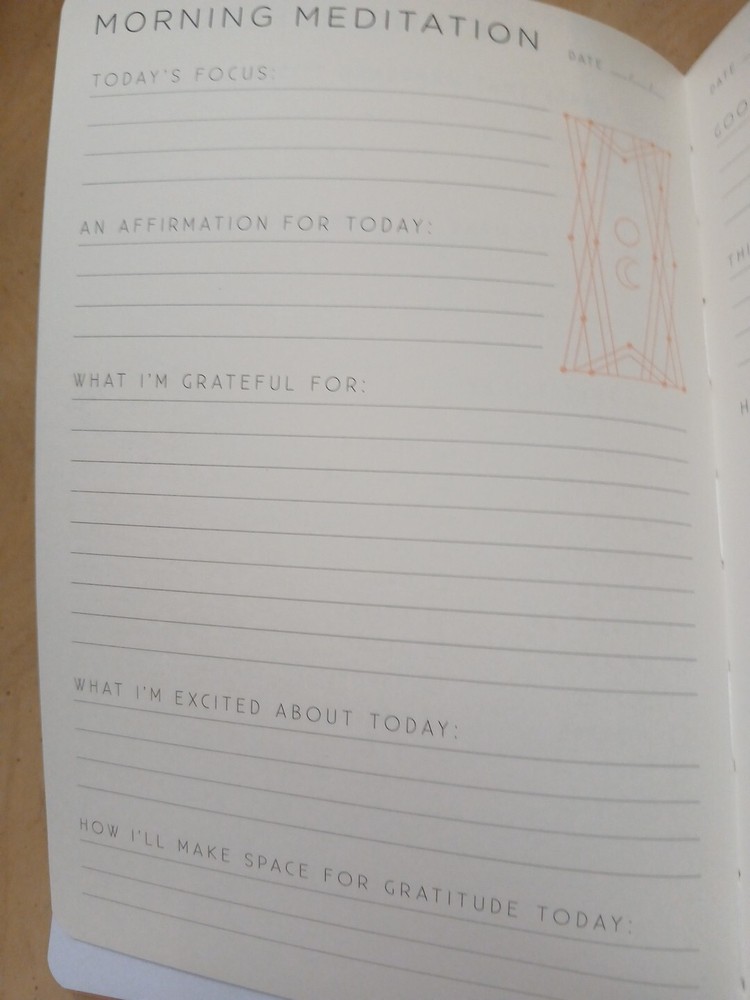 MORNING MEDITATION
DATE
TODAY'S FOCUS:
AN AFFIRMATION FOR TODAY:
WHAT I'M GRATEFUL FOR:
WHAT I'M EXCITED ABOUT TODAY:
HOW I'LL MAKE SPACE FOR GRATITUDE TODAY:
DATE